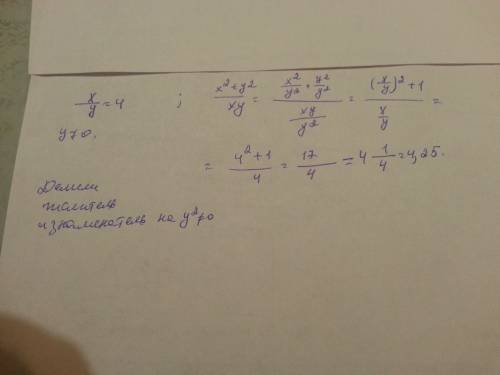 x/y = 4 ; (x² + y²)/(xy) = (x²/y² + y²/y²)/(xy/y²) = ((x/y)² + 1)/(x/y) =
y≠0,
= (4² + 1)/4 = 17/4 = 4 1/4 = 4,25.
Делили
числитель
и знаменатель на y²≠0